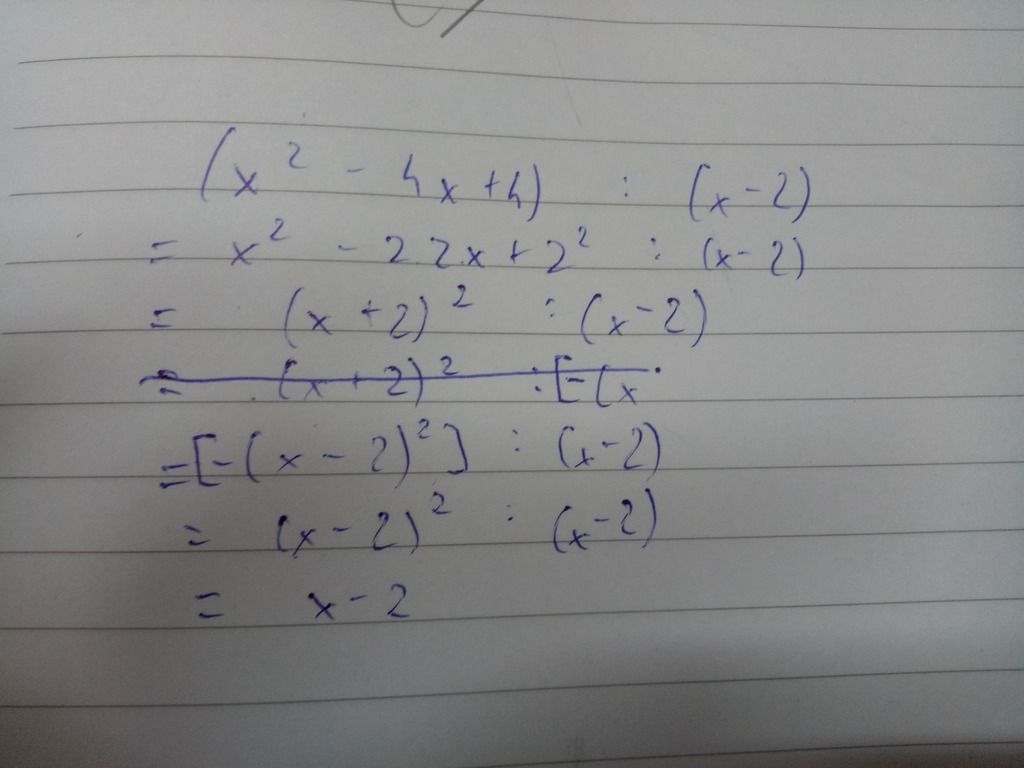 (x² - 4x+4) : (x-2)
= x² - 2 2x + 2² : (x-2)
= (x+2)² : (x-2)
= (x+2)² : [-(x
= [-(x-2)²] : (x-2)
= (x-2)² : (x-2)
= x-2